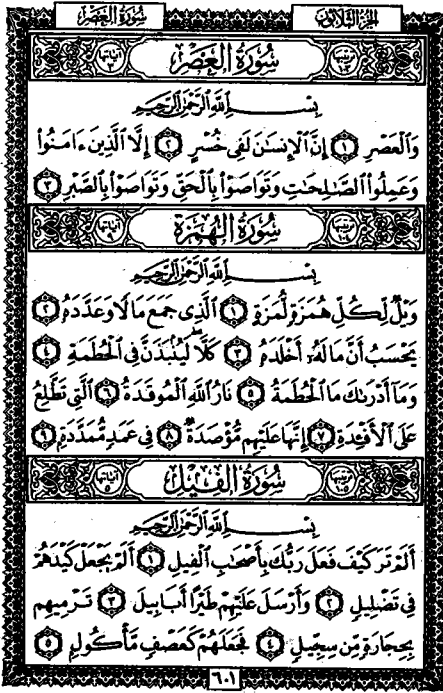 سُورَةُ العَصْرِ
الجُزءُ الثَّلَاثُونَ
سُورَةُ العَصْرِ
بِسْمِ اللَّهِ الرَّحْمَٰنِ الرَّحِيمِ
وَالْعَصْرِ ١ إِنَّ الْإِنسَٰنَ لَفِى خُسْرٍ ٢ إِلَّا الَّذِينَ ءَامَنُوا۟
وَعَمِلُوا۟ الصَّٰلِحَٰتِ وَتَوَاصَوْا۟ بِالْحَقِّ وَتَوَاصَوْا۟ بِالصَّبْرِ ٣
سُورَةُ الهُمَزَةِ
بِسْمِ اللَّهِ الرَّحْمَٰنِ الرَّحِيمِ
وَيْلٌ لِّكُلِّ هُمَزَةٍ لُّمَزَةٍ ١ الَّذِى جَمَعَ مَالًا وَعَدَّدَهُۥ ٢
يَحْسَبُ أَنَّ مَالَهُۥٓ أَخْلَدَهُۥ ٣ كَلَّا لَيُنۢبَذَنَّ فِى الْحُطَمَةِ ٤
وَمَآ أَدْرَىٰكَ مَا الْحُطَمَةُ ٥ نَارُ اللَّهِ الْمُوقَدَةُ ٦ الَّتِى تَطَّلِعُ
عَلَى الْأَفْـِٔدَةِ ٧ إِنَّهَا عَلَيْهِم مُّؤْصَدَةٌ ٨ فِى عَمَدٍ مُّمَدَّدَةٍ ٩
سُورَةُ الفِيلِ
بِسْمِ اللَّهِ الرَّحْمَٰنِ الرَّحِيمِ
أَلَمْ تَرَ كَيْفَ فَعَلَ رَبُّكَ بِأَصْحَٰبِ الْفِيلِ ١ أَلَمْ يَجْعَلْ كَيْدَهُمْ
فِى تَضْلِيلٍ ٢ وَأَرْسَلَ عَلَيْهِمْ طَيْرًا أَبَابِيلَ ٣ تَرْمِيهِم
بِحِجَارَةٍ مِّن سِجِّيلٍ ٤ فَجَعَلَهُمْ كَعَصْفٍ مَّأْكُولٍ ٥
٦٠١